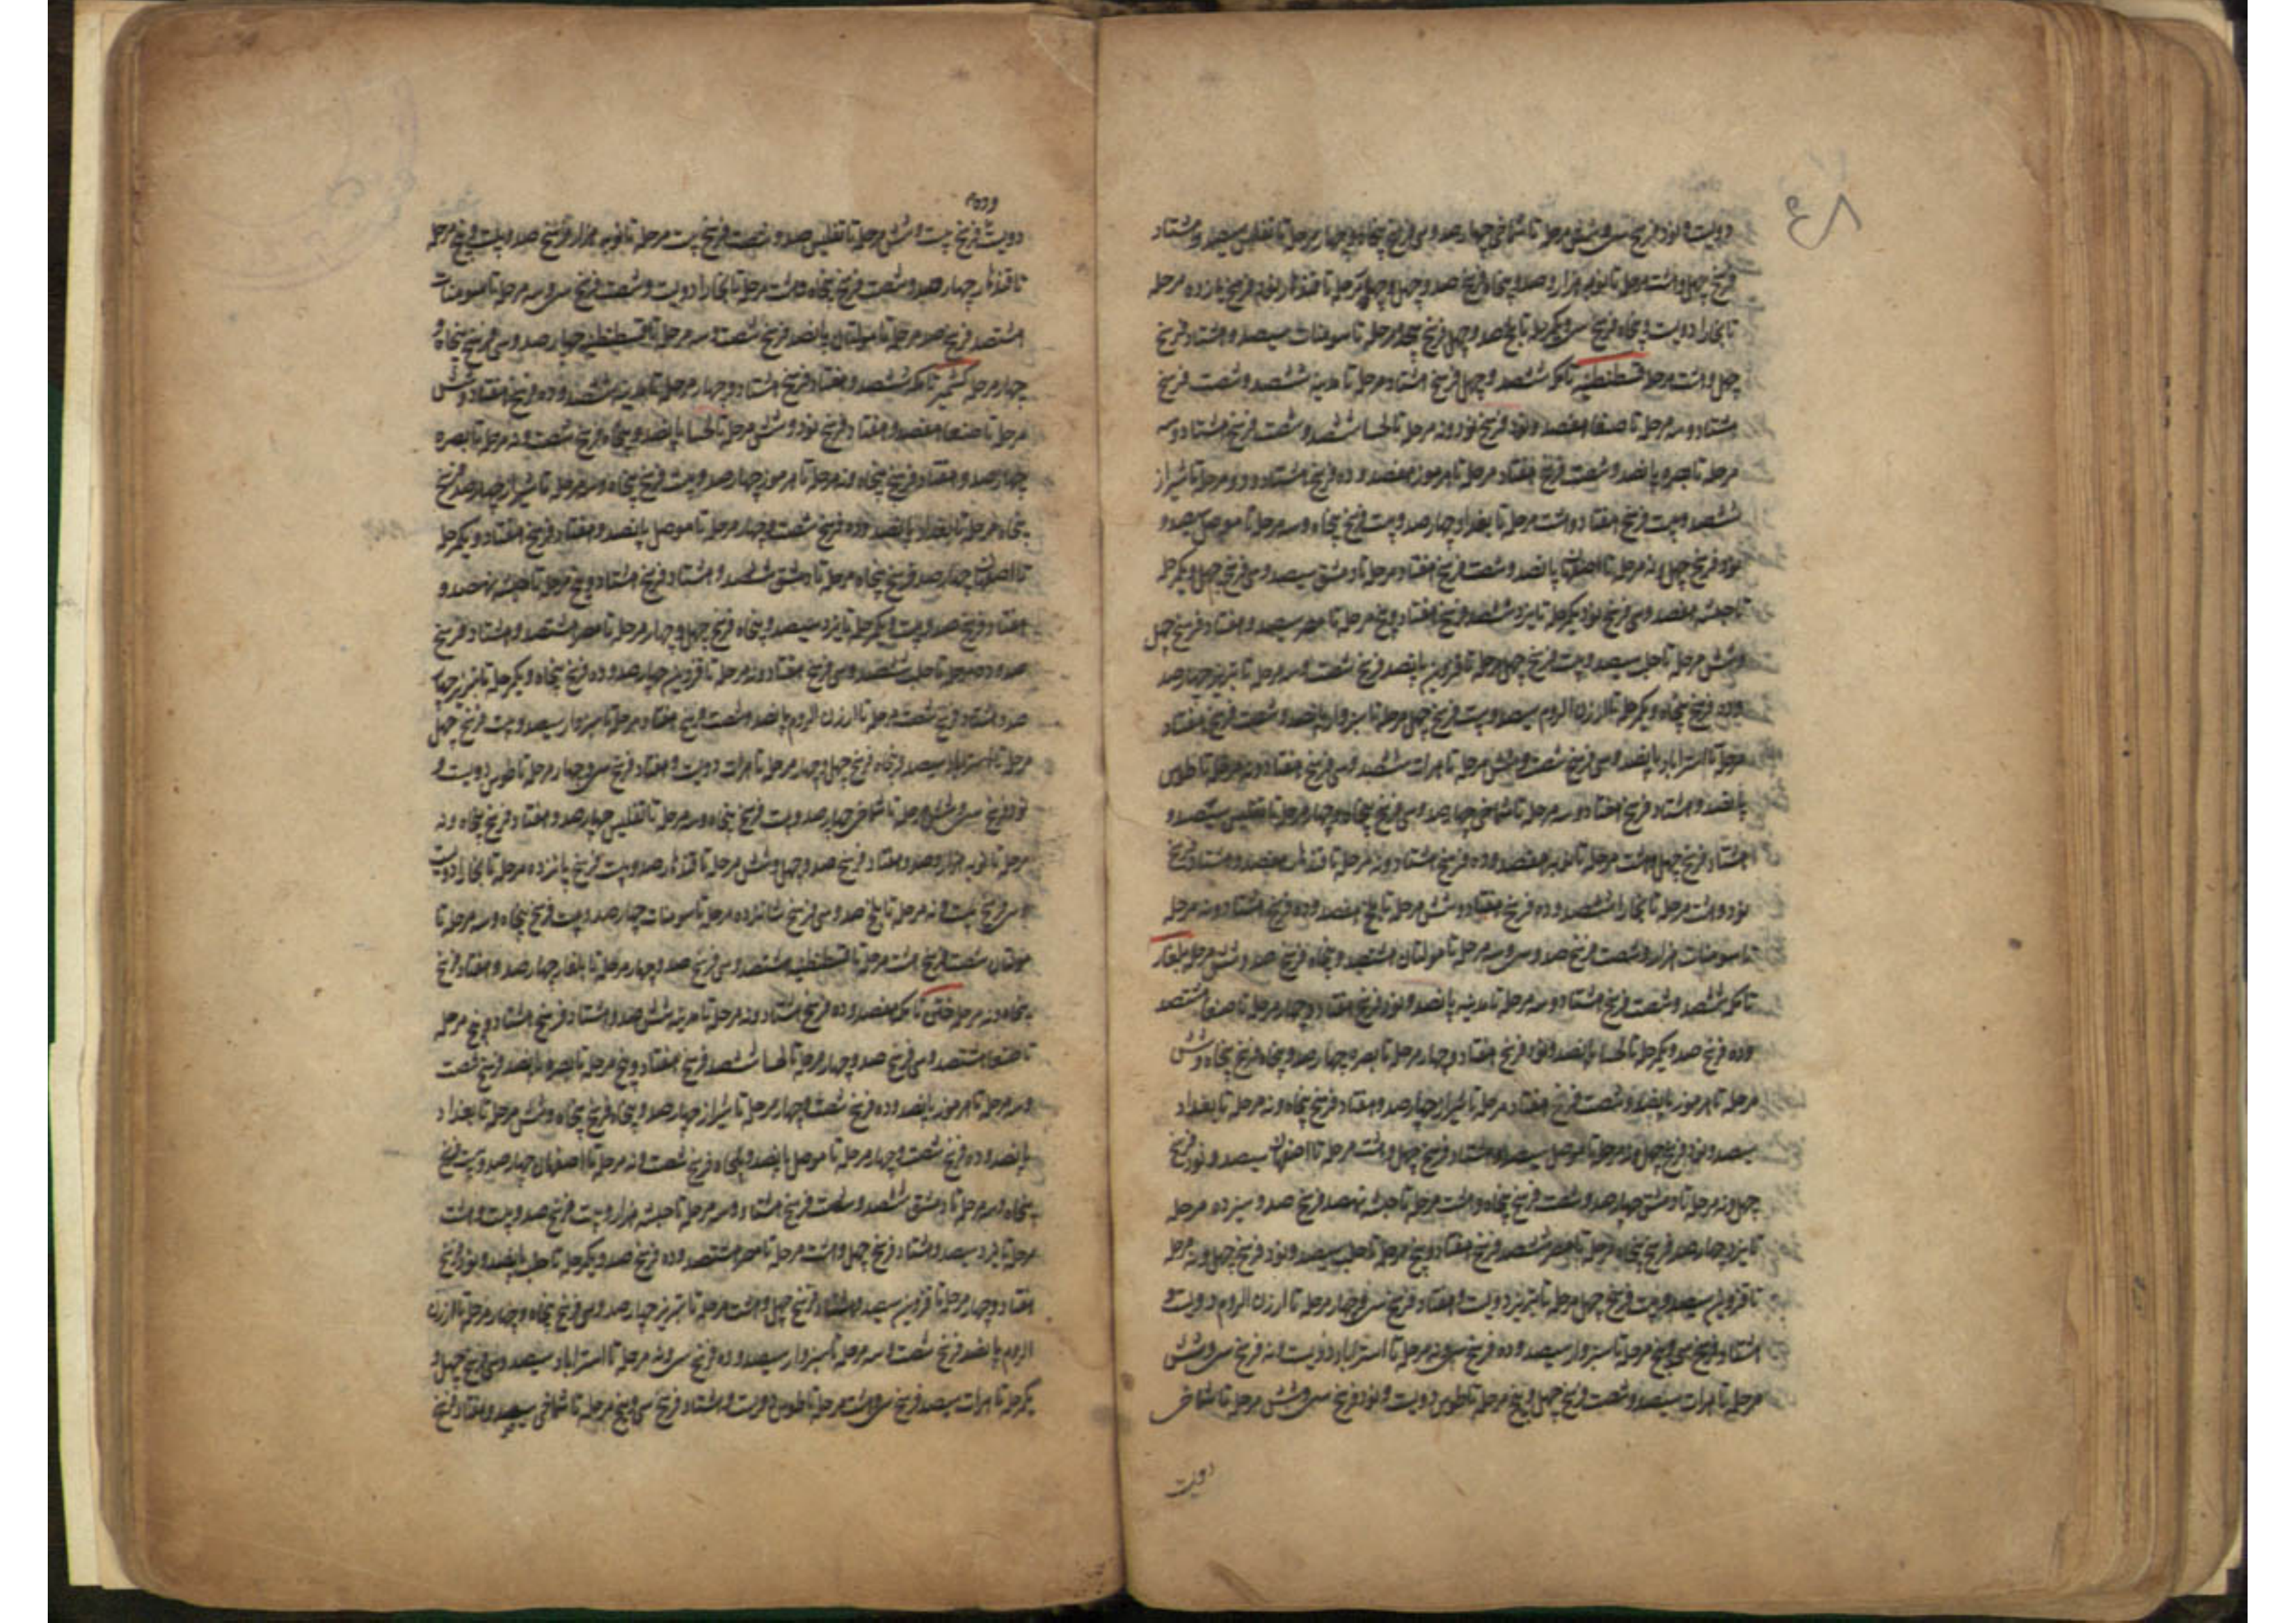 دویست و نود فرسخ سی و شش مرحله تا شماخی چهارصد و سی فرسخ پنجاه و چهار مرحله تا تفلیس سیصد و هشتاد
فرسخ چهل و هشت مرحله تا نوبه هزار و صد و پنجاه فرسخ صد و چهل و چهار مرحله تا قندهار نود فرسخ یازده مرحله
تا بخارا دویست و پنجاه فرسخ سی و یکمرحله تا بلخ صد و چهل فرسخ مرحله تا سومنات سیصد و هشتاد فرسخ
چهل و هشت مرحله قسطنطنیه تا مکه ششصد و چهل فرسخ هشتاد مرحله تا مدینه ششصد و شصت فرسخ
هشتاد و سه مرحله تا صنعا هفتصد و نود فرسخ نود و نه مرحله تا لحسا ششصد و شصت فرسخ هشتاد و سه
مرحله تا بصره پانصد و شصت فرسخ هفتاد مرحله تا هرموز هفصد و ده فرسخ هشتاد و دو مرحله تا شیراز
ششصد و بیست فرسخ هفتاد و هشت مرحله تا بغداد چهارصد و بیست فرسخ پنجاه و سه مرحله تا موصل سیصد و
نود فرسخ چهل و نه مرحله تا اصفهان پانصد و شصت فرسخ هفتاد مرحله تا دمشق سیصد و سی فرسخ چهل و یکمرحله
تا حبشه هفصد و سی فرسخ نود و یکمرحله تا یزد ششصد فرسخ هفتاد و پنج مرحله تا مصر سیصد و هفتاد فرسخ چهل
و شش مرحله تا حلب سیصد و بیست فرسخ چهل مرحله تا قزوین پانصد فرسخ شصت و سه مرحله تا تبریز چهارصد
و ده فرسخ پنجاه و یکمرحله تا ارزن الروم سیصد و بیست فرسخ چهل مرحله تا سبزوار پانصد و شصت فرسخ هفتاد
مرحله تا استراباد پانصد و سی فرسخ شصت و شش مرحله تا هرات ششصد و سی فرسخ هفتاد و نه مرحله تا طوس
پانصد و هشتاد فرسخ هفتاد و سه مرحله تا شماخی چهارصد و سی فرسخ پنجاه و چهار مرحله تا تفلیس سیصد و
هشتاد فرسخ چهل و هشت مرحله تا نوبه هفصد و ده فرسخ هشتاد و نه مرحله تا قندهار هفصد و هشتاد فرسخ
نود و هشت مرحله تا بخارا ششصد و ده فرسخ هفتاد و شش مرحله تا بلخ هفصد و ده فرسخ هشتاد و نه مرحله
تا سومنات هزار و شصت فرسخ صد و سی و سه مرحله تا مولتان هشتصد و پنجاه فرسخ صد و شش مرحله بلغار
تا مکه ششصد و شصت فرسخ هشتاد و سه مرحله تا مدینه پانصد و نود فرسخ هفتاد و چهار مرحله تا صنعا هشتصد
و ده فرسخ صد و یکمرحله تا لحسا پانصد و نود فرسخ هفتاد و چهار مرحله تا بصره چهارصد و پنجاه فرسخ پنجاه و شش
مرحله تا هرموز پانصد و شصت فرسخ هفتاد مرحله تا شیراز چهارصد و هفتاد فرسخ پنجاه و نه مرحله تا بغداد
سیصد و نود فرسخ چهل و نه مرحله تا موصل سیصد و هشتاد فرسخ چهل و هشت مرحله تا اصفهان سیصد و نود فرسخ
چهل و نه مرحله تا دمشق چهارصد و شصت فرسخ پنجاه و هشت مرحله تا حبشه نهصد فرسخ صد و سیزده مرحله
تا یزد چهارصد فرسخ پنجاه مرحله تا مصر ششصد فرسخ هفتاد و پنج مرحله تا حلب سیصد و نود فرسخ چهل و نه مرحله
تا قزوین سیصد و بیست فرسخ چهل مرحله تا تبریز دویست و هفتاد فرسخ سی و چهار مرحله تا ارزن الروم دویست و
هشتاد فرسخ سی و پنج مرحله تا سبزوار سیصد و ده فرسخ سی و نه مرحله تا استراباد دویست و نه فرسخ سی و شش
مرحله تا هرات سیصد و شصت فرسخ چهل و پنج مرحله تا طوس دویست و نود فرسخ سی و شش مرحله تا شماخی
دویست
دویست فرسخ بیست و شش مرحله تا تفلیس صد و شصت فرسخ بیست مرحله تا نوبه هزار فرسخ صد و بیست و پنج مرحله
تا قندهار چهارصد و شصت فرسخ پنجاه و هشت مرحله تا بخارا دویست و شصت فرسخ سی و سه مرحله تا سومنات
هشتصد فرسخ صد مرحله تا مولتان پانصد فرسخ شصت و سه مرحله تا قسطنطنیه چهارصد و سی فرسخ پنجاه و
چهار مرحله کشمیر تا مکه ششصد و هفتاد فرسخ هشتاد و چهار مرحله تا مدینه ششصد و ده فرسخ هفتاد و شش
مرحله تا صنعا هفتصد و هفتاد فرسخ نود و شش مرحله تا لحسا پانصد و پنجاه فرسخ شصت و نه مرحله تا بصره
چهارصد و هفتاد فرسخ پنجاه و نه مرحله تا هرموز چهارصد و بیست فرسخ پنجاه و سه مرحله تا شیراز چهارصد فرسخ
پنجاه مرحله تا بغداد پانصد و ده فرسخ شصت و چهار مرحله تا موصل پانصد و هفتاد فرسخ هفتاد و یکمرحله
تا اصفهان چهارصد فرسخ پنجاه مرحله تا دمشق ششصد و هشتاد فرسخ هشتاد و پنج مرحله تا حبشه نهصد و
هفتاد فرسخ صد و بیست و یکمرحله تا یزد سیصد و پنجاه فرسخ چهل و چهار مرحله تا مصر هشتصد و هشتاد فرسخ
صد و ده مرحله تا حلب ششصد و سی فرسخ هفتاد و نه مرحله تا قزوین چهارصد و ده فرسخ پنجاه و یکمرحله تا تبریز چهار
صد و هشتاد فرسخ شصت مرحله تا ارزن الروم پانصد و شصت فرسخ هفتاد مرحله تا سبزوار سیصد و بیست فرسخ چهل
مرحله تا استراباد سیصد و پنجاه فرسخ چهل و چهار مرحله تا هرات دویست و هفتاد فرسخ سی و چهار مرحله تا طوس دویست و
نود فرسخ سی و شش مرحله تا شماخی چهارصد و بیست فرسخ پنجاه و سه مرحله تا تفلیس چهارصد و هفتاد فرسخ پنجاه و نه
مرحله تا نوبه هزار و صد و هفتاد فرسخ صد و چهل و شش مرحله تا قندهار صد و بیست فرسخ پانزده مرحله تا بخارا دویست
و سی فرسخ بیست و نه مرحله تا بلخ صد و سی فرسخ شانزده مرحله تا سومنات چهارصد و بیست فرسخ پنجاه و سه مرحله تا
مولتان شصت فرسخ هشت مرحله تا قسطنطنیه هشتصد و سی فرسخ صد و چهار مرحله تا بلغار چهارصد و هفتاد فرسخ
پنجاه و نه مرحله ختن تا مکه هفصد و ده فرسخ هشتاد و نه مرحله تا مدینه شش صد و هشتاد فرسخ هشتاد و پنج مرحله
تا صنعا هشتصد و سی فرسخ صد و چهار مرحله تا لحسا ششصد فرسخ هفتاد و پنج مرحله تا بصره پانصد فرسخ شصت
و سه مرحله تا هرموز پانصد و ده فرسخ شصت و چهار مرحله تا شیراز چهارصد و پنجاه فرسخ پنجاه و شش مرحله تا بغداد
پانصد و ده فرسخ شصت و چهار مرحله تا موصل پانصد و پنجاه فرسخ شصت و نه مرحله تا اصفهان چهارصد و بیست فرسخ
پنجاه و سه مرحله تا دمشق ششصد و شصت فرسخ هشتاد و سه مرحله تا حبشه هزار و بیست فرسخ صد و بیست و هشت
مرحله تا یزد سیصد و هشتاد فرسخ چهل و هشت مرحله تا مصر هشتصد و ده فرسخ صد و یکمرحله تا حلب پانصد و نود فرسخ
هفتاد و چهار مرحله تا قزوین سیصد و هشتاد فرسخ چهل و هشت مرحله تا تبریز چهارصد و سی فرسخ پنجاه و چهار مرحله تا ارزن
الروم پانصد فرسخ شصت و سه مرحله تا سبزوار سیصد و ده فرسخ سی و نه مرحله تا استراباد سیصد و سی فرسخ چهل و
یکمرحله تا هرات سیصد فرسخ سی و هشت مرحله تا طوس دویست و هشتاد فرسخ سی و پنج مرحله تا شماخی سیصد و هفتاد فرسخ